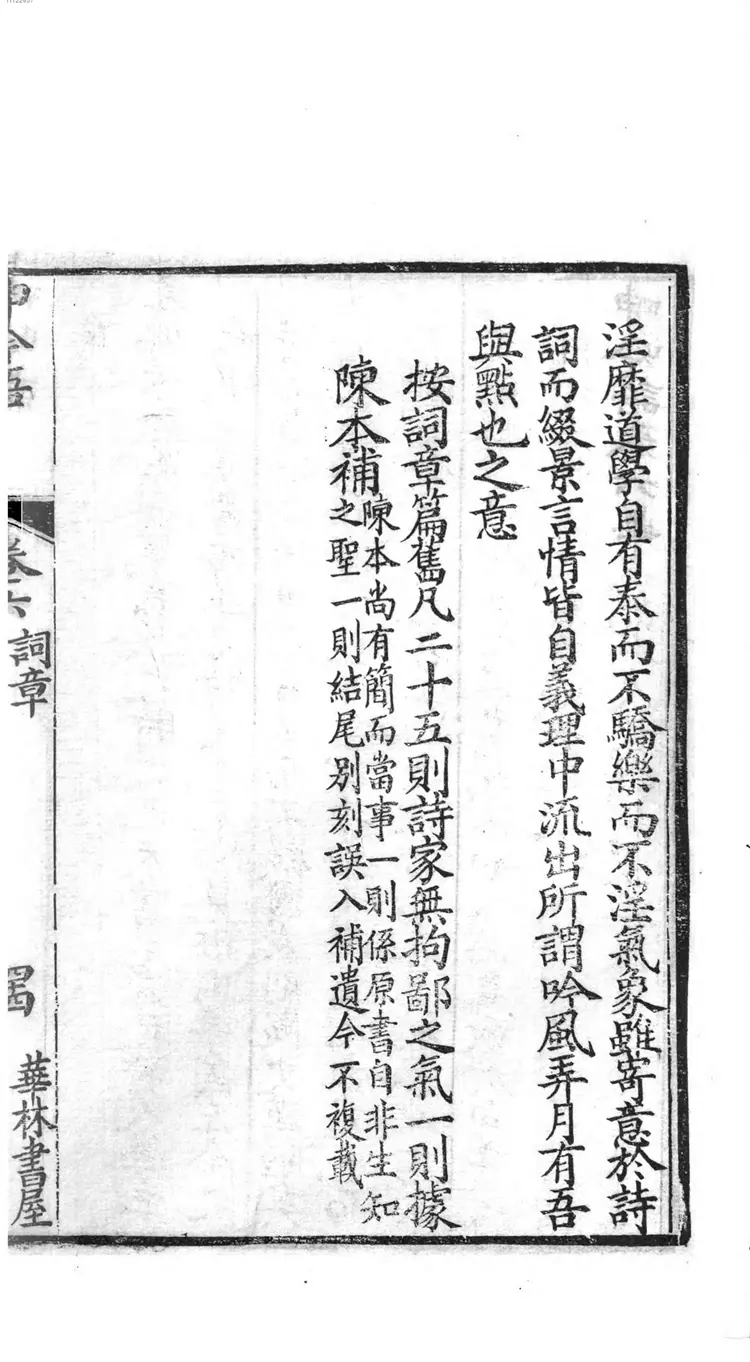 淫靡道學自有泰而不驕樂而不淫氣象雖寄意於詩
詞而綴景言情皆自義理中流出所謂吟風弄月有吾
與點也之意
按詞章篇舊凡二十五則詩家無拘鄙之氣一則據
陳本補
陳本尚有簡而當事一則係原書自非生知
之聖一則結尾別刻誤入補遺今不複載
呻吟語
卷六
詞章
華林書屋